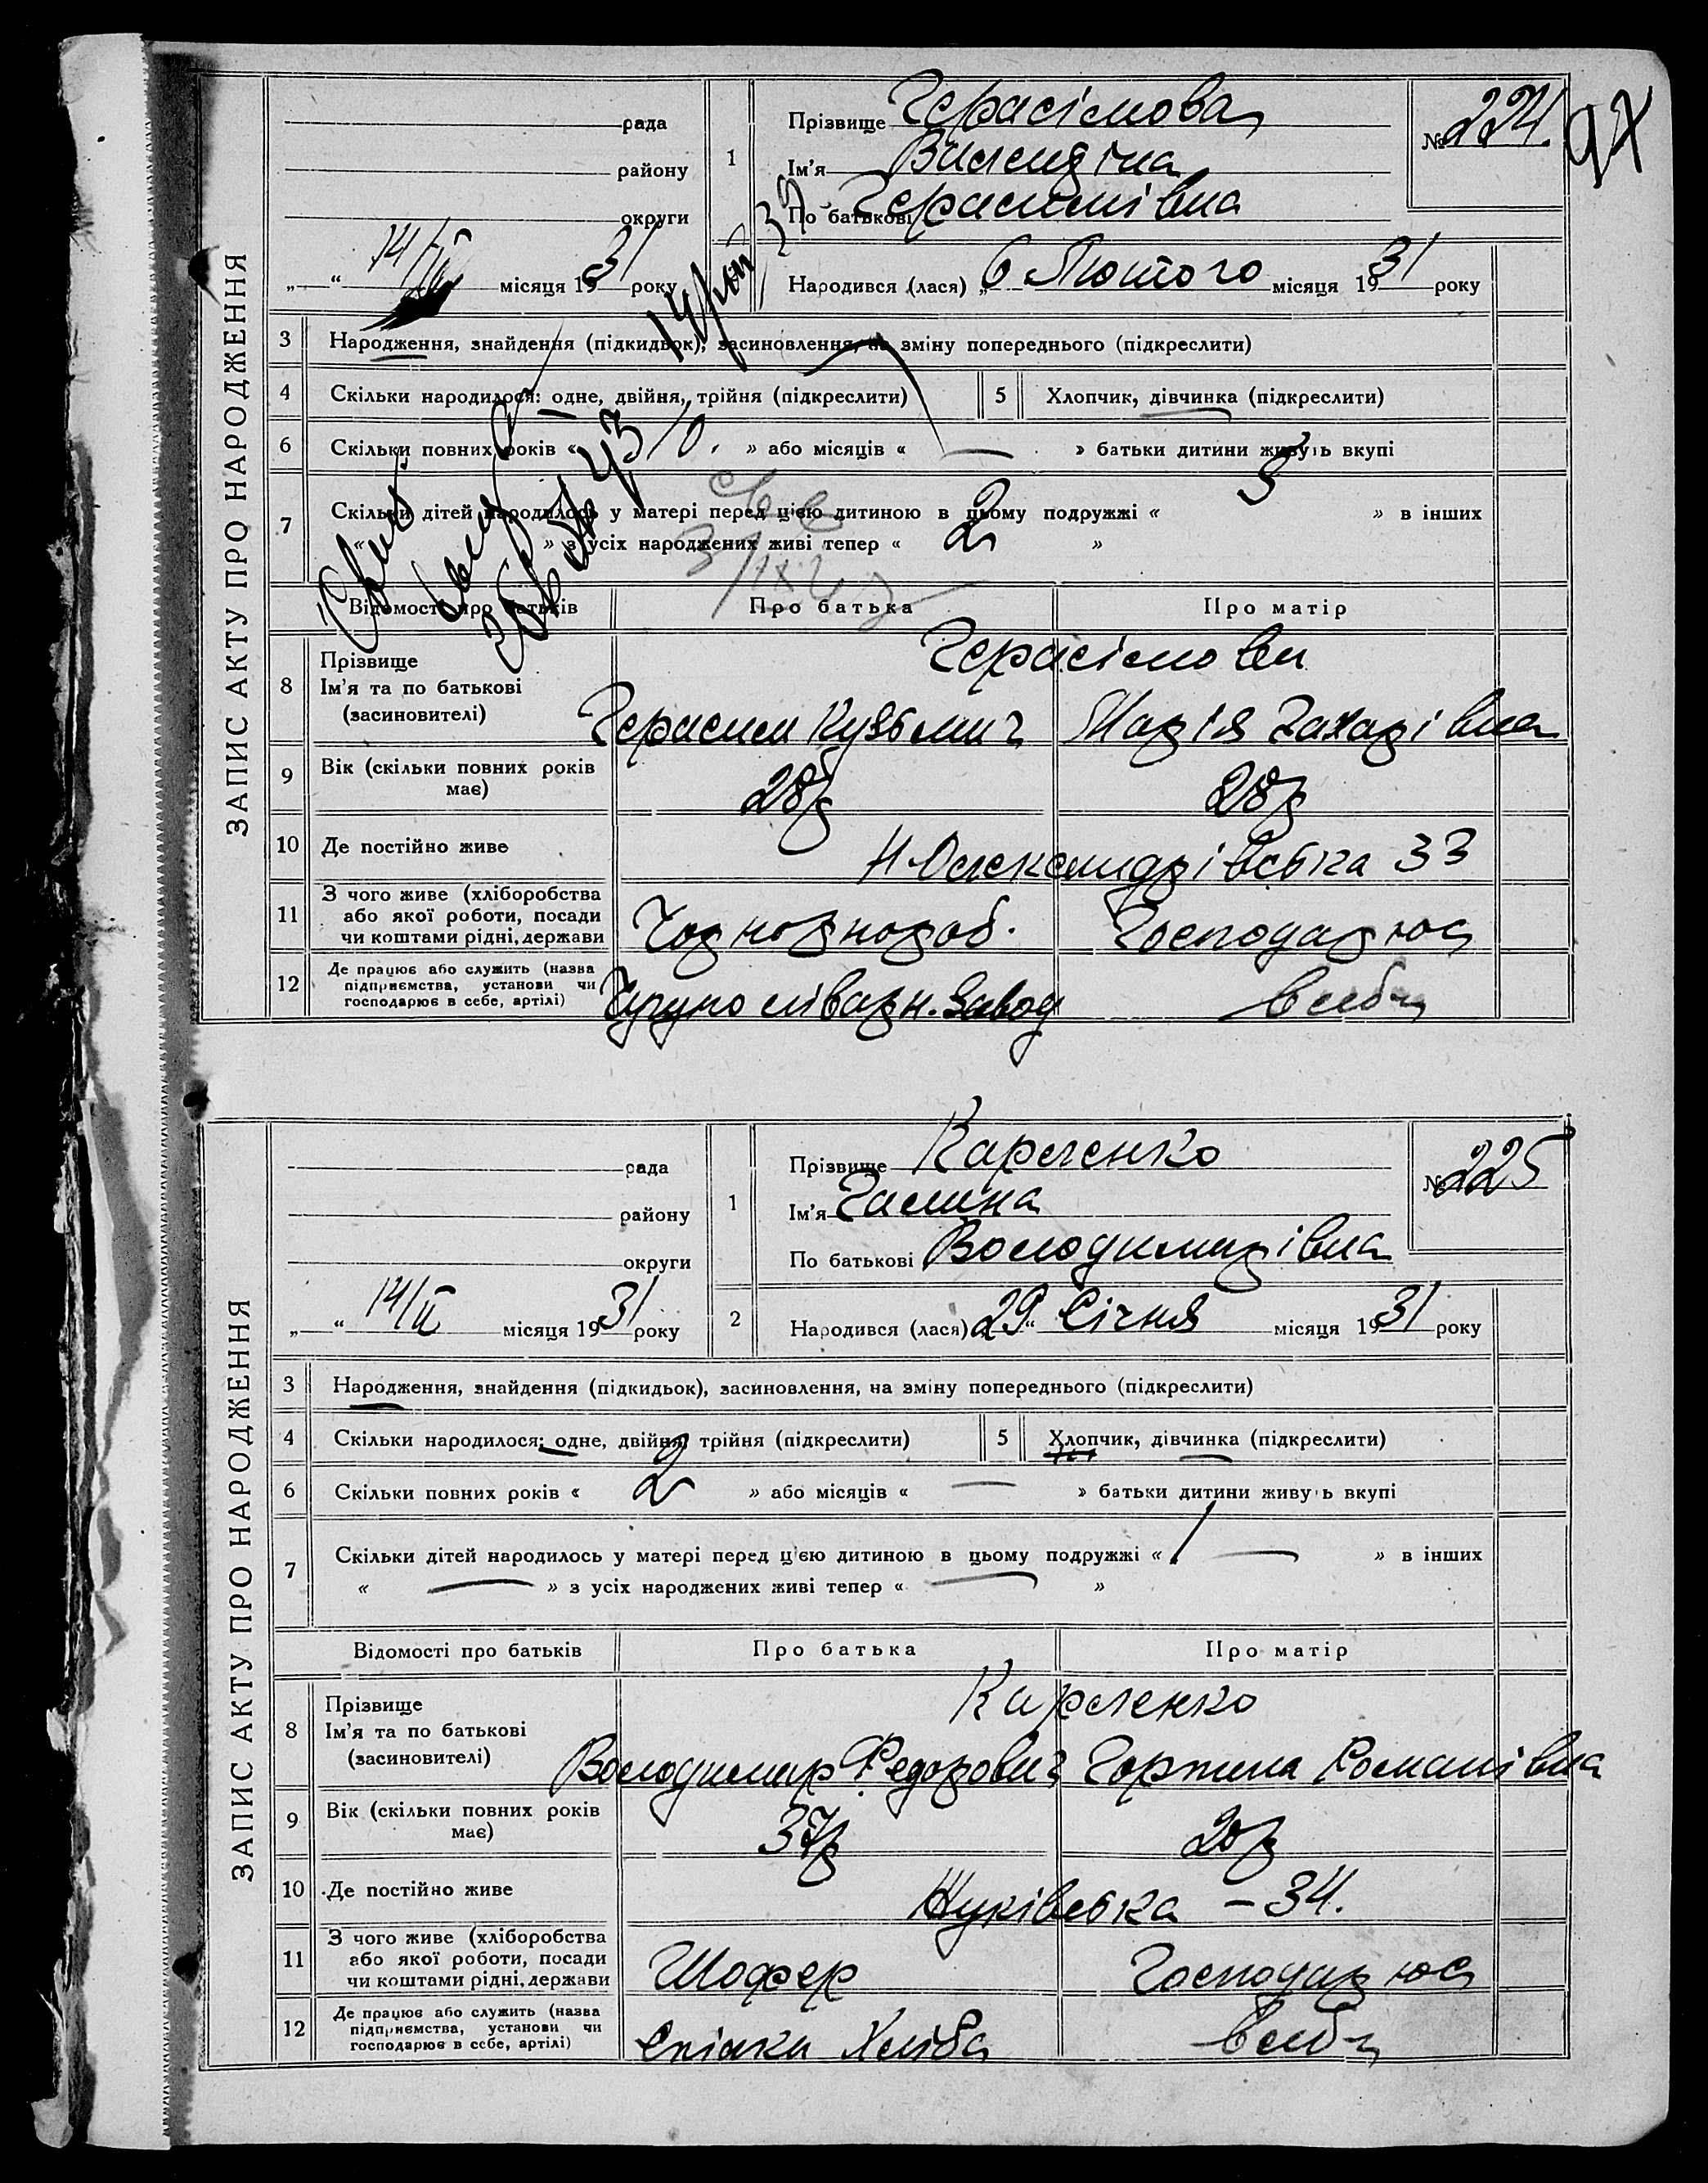 ЗАПИС АКТУ ПРО НАРОДЖЕННЯ
рада
району
округи
14/II місяця 1931 року
1
Прізвище Герасімова
Ім'я Валендіна
По батькові Герасимівна
№ 224.
Народився (лася) „6 Лютого місяця 1931 року
3 Народження, знайдення (підкидьок), засиновлення, на зміну попереднього (підкреслити)
4 Скільки народилося: одне, двійня, трійня (підкреслити) 5 Хлопчик, дівчинка (підкреслити)
6 Скільки повних років « 10. » або місяців « — » батьки дитини живуть вкупі
7 Скільки дітей народилось у матері перед цією дитиною в цьому подружжі « 3 » в інших
« » з усіх народжених живі тепер « 2 »
Відомості про батьків Про батька Про матір
8 Прізвище Герасімови
Ім'я та по батькові
(засиновителі) Герасим Кузьмич Марія Захарівна
9 Вік (скільки повних років має) 28р 28р
10 Де постійно живе Н-Олександрівська 33
11 З чого живе (хліборобства або якої роботи, посади чи коштами рідні, держави Чорнороб. Господарює
12 Де працює або служить (назва підприємства, установи чи господарює в себе, артілі) Чугуно ліварн. Завод в себе
ЗАПИС АКТУ ПРО НАРОДЖЕННЯ
рада
району
округи
„ “ 14/II місяця 1931 року
1
Прізвище Карпенко
Ім'я Галина
По батькові Володимирівна
№ 225
2 Народився (лася) „29“ Січня місяця 1931 року
3 Народження, знайдення (підкидьок), засиновлення, на зміну попереднього (підкреслити)
4 Скільки народилося: одне, двійня, трійня (підкреслити) 5 Хлопчик, дівчинка (підкреслити)
6 Скільки повних років « 2 » або місяців « — » батьки дитини живуть вкупі
7 Скільки дітей народилось у матері перед цією дитиною в цьому подружжі « 1 — » в інших
« — » з усіх народжених живі тепер « — »
Відомості про батьків Про батька Про матір
8 Прізвище Карпенко
Ім'я та по батькові
(засиновителі) Володимир Федорович Горпина Романівна
9 Вік (скільки повних років має) 37р 20р
10 Де постійно живе – 34.
11 З чого живе (хліборобства або якої роботи, посади чи коштами рідні, держави Шофер Господарює
12 Де працює або служить (назва підприємства, установи чи господарює в себе, артілі) Спілки Хліба в себе